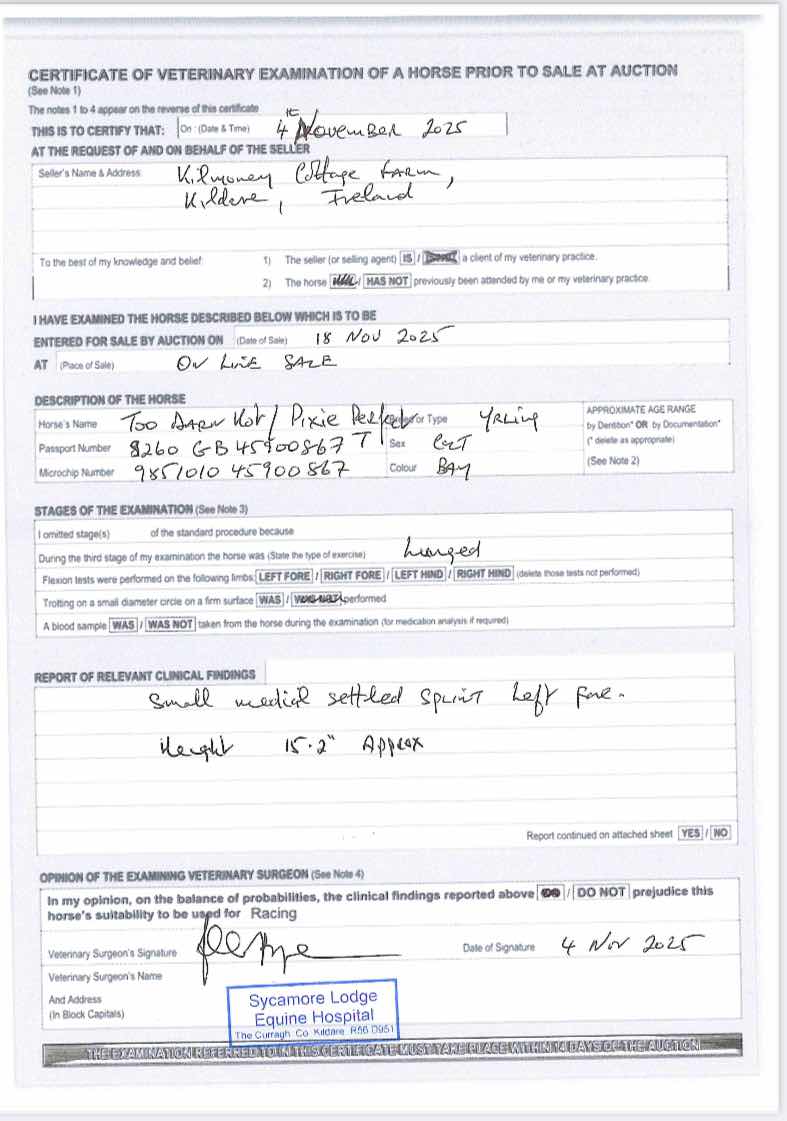 CERTIFICATE OF VETERINARY EXAMINATION OF A HORSE PRIOR TO SALE AT AUCTION
(See Note 1)
The notes 1 to 4 appear on the reverse of this certificate
THIS IS TO CERTIFY THAT: On (Date & Time) 4TH November 2025
AT THE REQUEST OF AND ON BEHALF OF THE SELLER
Seller's Name & Address Kilmoney Cottage FARM,
Kildare, Ireland
To the best of my knowledge and belief: 1) The seller (or selling agent) IS / a client of my veterinary practice.
2) The horse / HAS NOT previously been attended by me or my veterinary practice.
I HAVE EXAMINED THE HORSE DESCRIBED BELOW WHICH IS TO BE
ENTERED FOR SALE BY AUCTION ON (Date of Sale) 18 NOV 2025
AT (Place of Sale) ON LINE SALE
DESCRIPTION OF THE HORSE
Horse's Name TOO DARN HOT / PIXIE Perfect or Type YRLING
Passport Number 8260 GB 45900867 T Sex COLT
Microchip Number 985101045900867 Colour BAY
APPROXIMATE AGE RANGE
by Dentition* OR by Documentation*
(* delete as appropriate)
(See Note 2)
STAGES OF THE EXAMINATION (See Note 3)
I omitted stage(s) of the standard procedure because
During the third stage of my examination the horse was (State the type of exercise) Lunged
Flexion tests were performed on the following limbs: LEFT FORE / RIGHT FORE / LEFT HIND / RIGHT HIND (delete those tests not performed)
Trotting on a small diameter circle on a firm surface WAS / WAS NOT performed
A blood sample WAS / WAS NOT taken from the horse during the examination (for medication analysis if required)
REPORT OF RELEVANT CLINICAL FINDINGS
Small medial settled SPLINT Left Fore.
Height 15.2" APPROX
Report continued on attached sheet YES / NO
OPINION OF THE EXAMINING VETERINARY SURGEON (See Note 4)
In my opinion, on the balance of probabilities, the clinical findings reported above / DO NOT prejudice this
horse's suitability to be used for Racing
Veterinary Surgeon's Signature Date of Signature 4 NOV 2025
Veterinary Surgeon's Name
And Address
(In Block Capitals)
Sycamore Lodge
Equine Hospital
The Curragh Co Kildare R56 D951
THE EXAMINATION REFERRED TO IN THIS CERTIFICATE MUST TAKE PLACE WITHIN 14 DAYS OF THE AUCTION